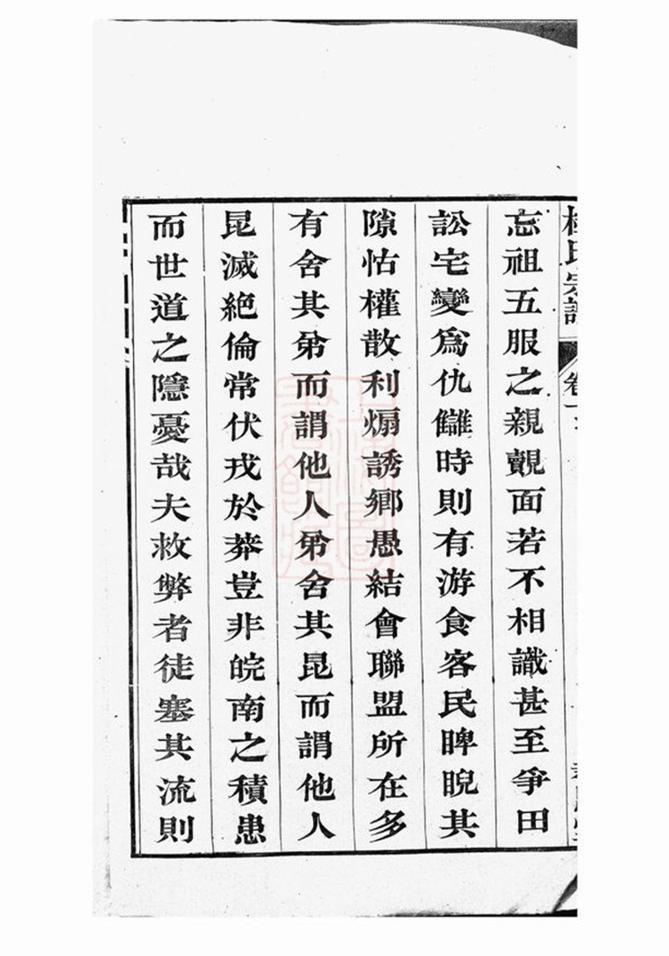 氏宗譜 卷一
忘祖五服之親覿面若不相識甚至爭田
訟宅變爲仇讎時則有游食客民睥睨其
隙怙權散利煽誘鄉愚結會聯盟所在多
有舍其弟而謂他人弟舍其昆而謂他人
昆滅絕倫常伏戎於莽豈非皖南之積患
而世道之隱憂哉夫救弊者徒塞其流則